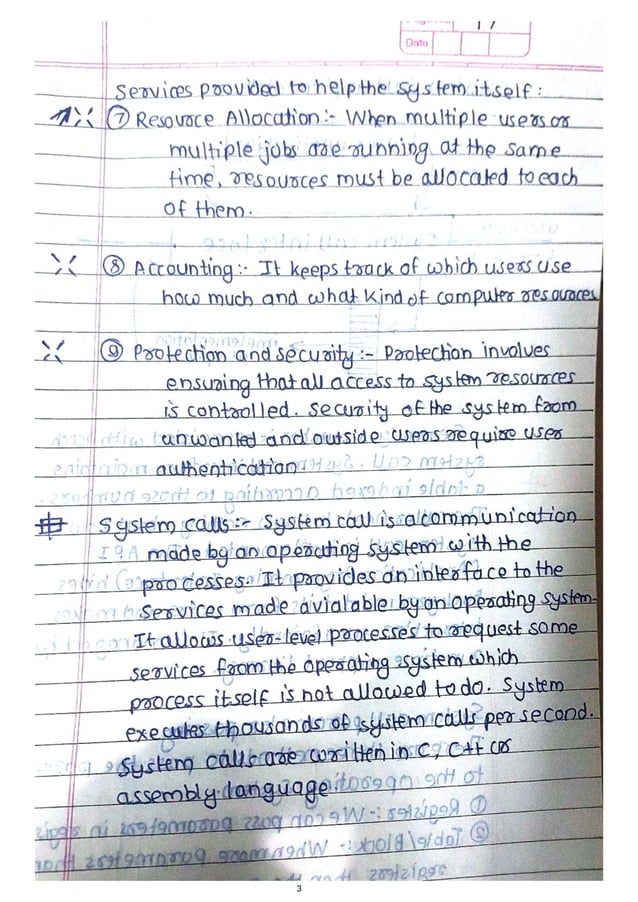 17
Date
Services provided to help the system itself:
⑦ Resource Allocation:- When multiple users or
multiple jobs are running at the same
time, resources must be allocated to each
of them.
⑧ Accounting:- It keeps track of which users use
how much and what kind of computer resources
⑨ Protection and security:- Protection involves
ensuring that all access to system resources
is controlled. Security of the system from
unwanted and outside users require user
authentication
System calls:- System call is a communication
made by an operating system with the
processes. It provides an interface to the
services made avialable by an operating system
It allows user-level processes to request some
services from the operating system which
process itself is not allowed to do. System
executes thousands of system calls per second.
System calls are written in C, C++ or
assembly language
3